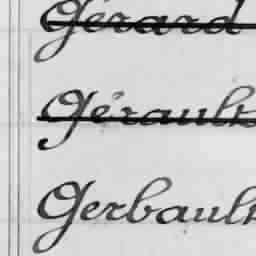 Gérard
Gérault
Gerbault